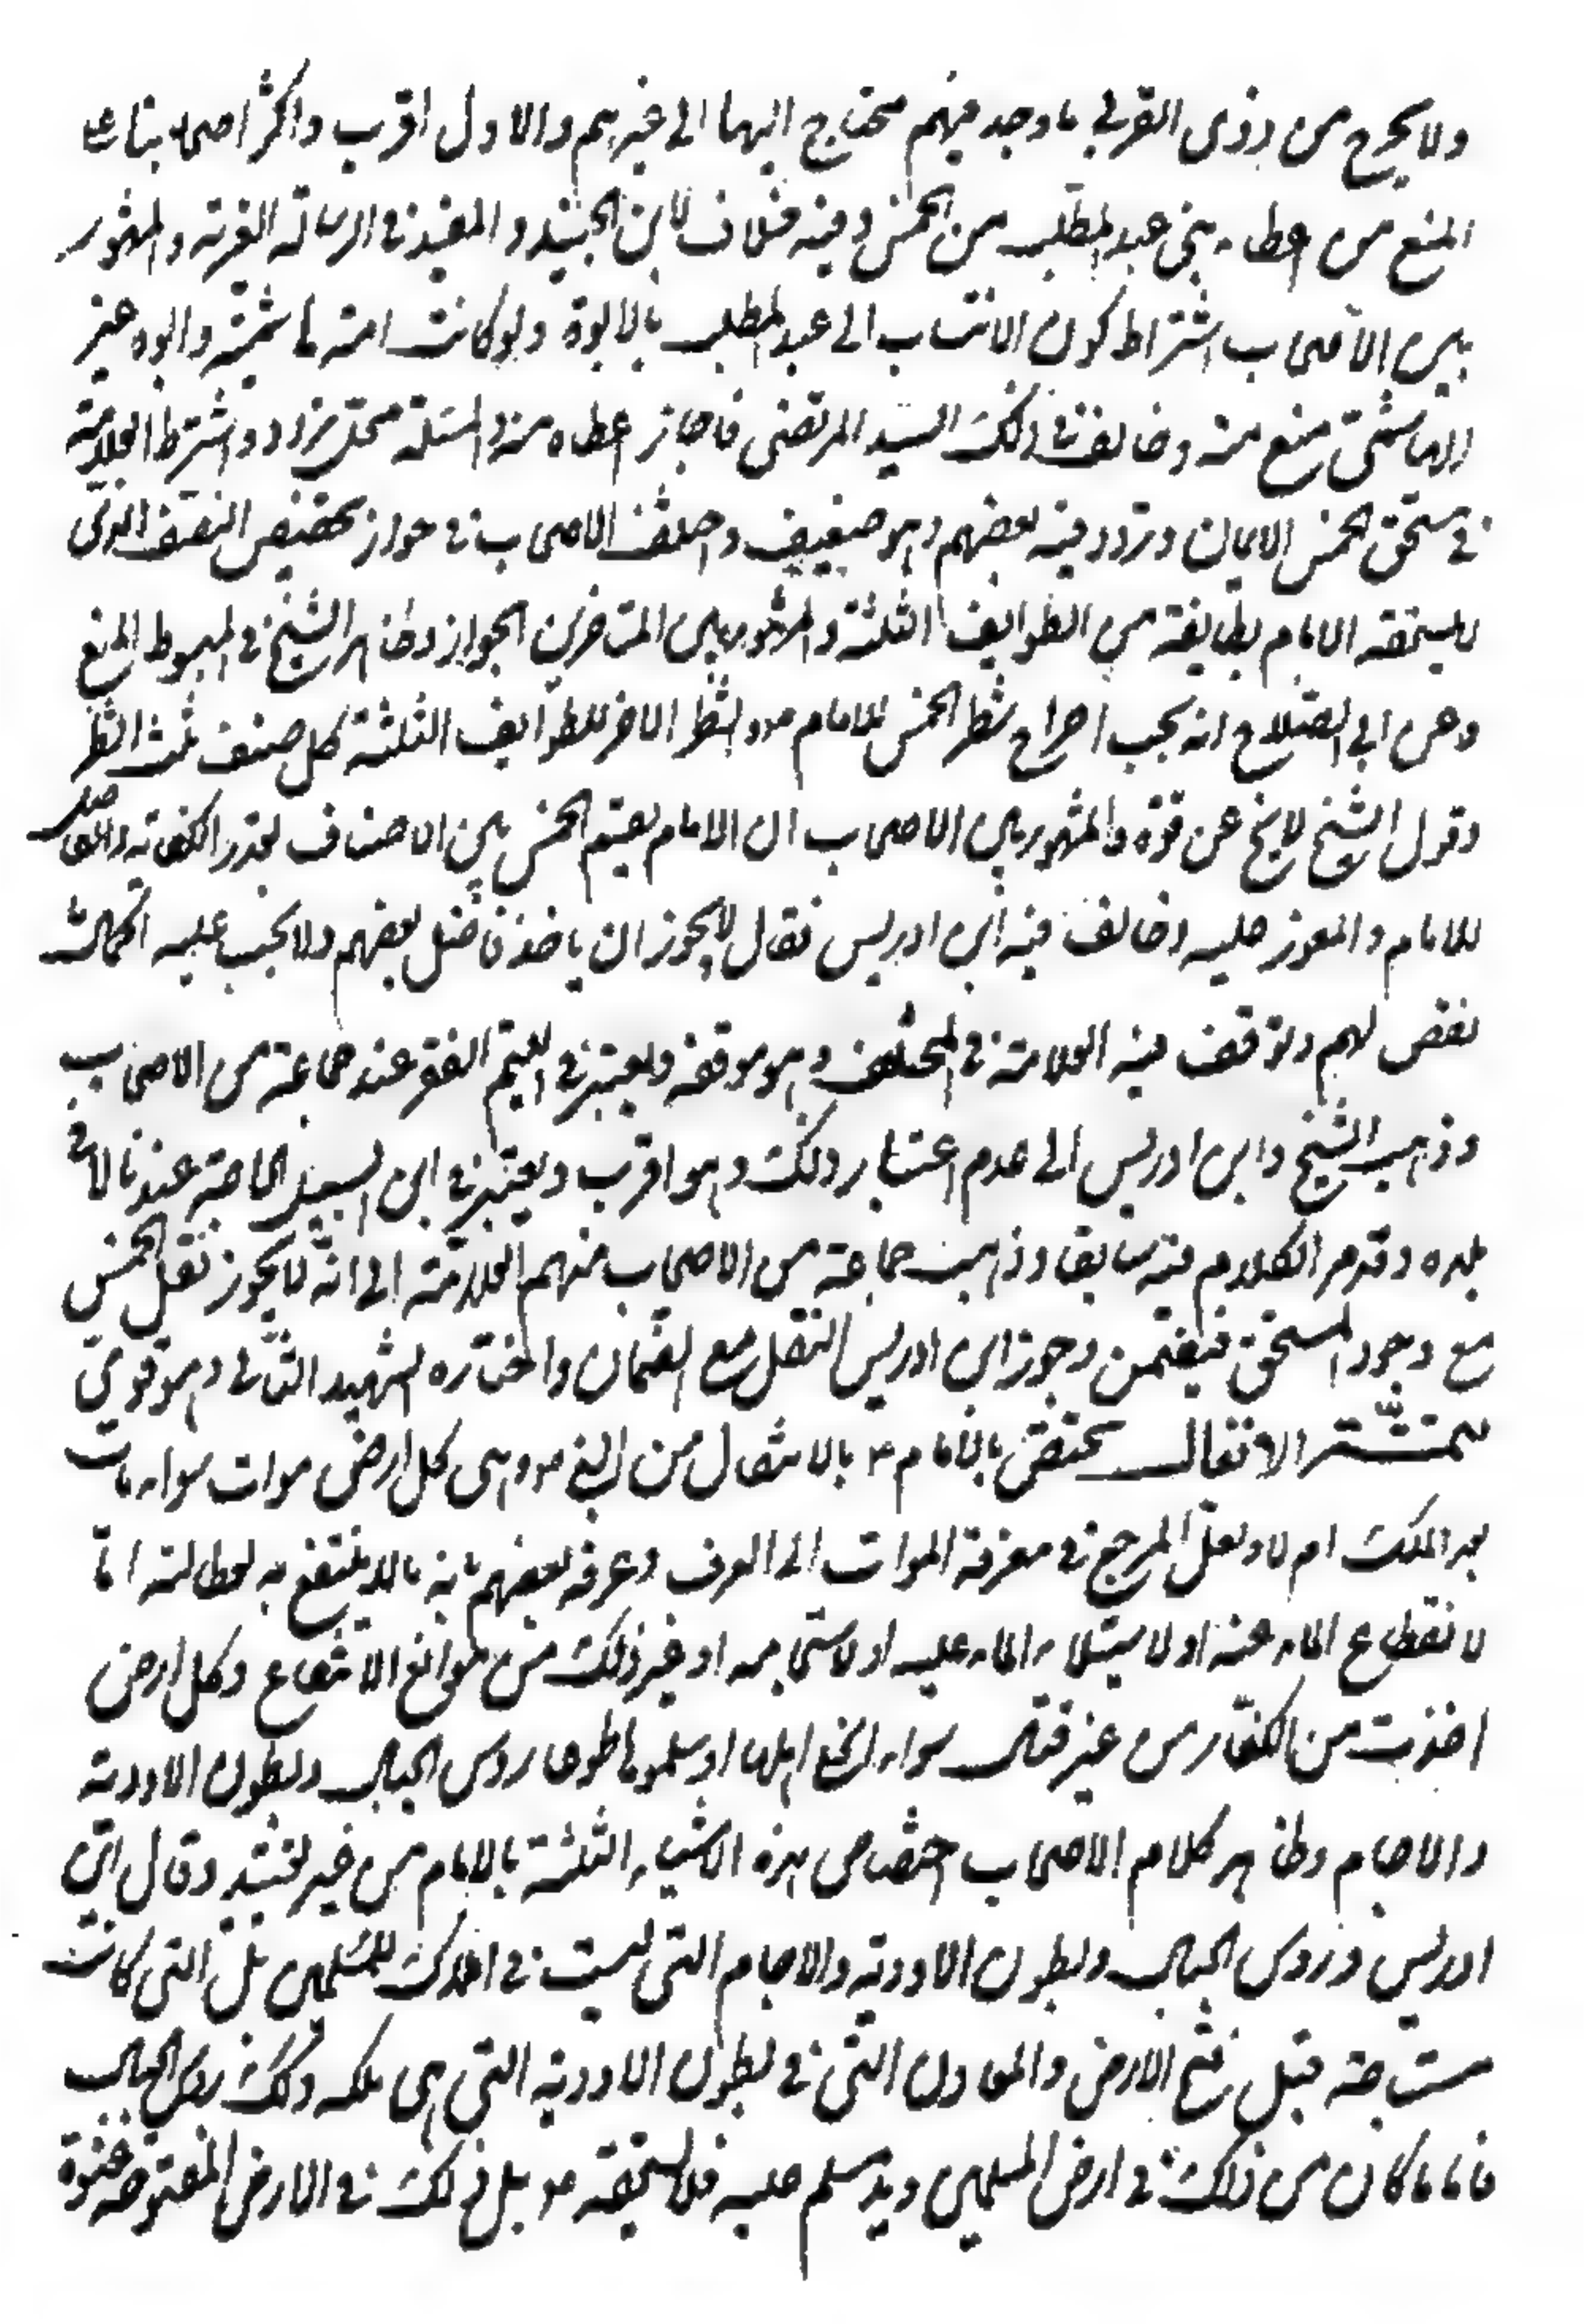 ولا يخرج من ذوى القربى ما وجد فيهم محتاج اليها الى غيرهم والاول اقرب واكثر اصحابنا على
المنع من اعطاء بنى عبد المطلب من الخمس وفيه خلاف لابن الجنيد والمفيد في الرسالة الغرية والمشهور
بين الأصحاب اشتراط كون الانتساب الى عبد المطلب بالابوة ولو كانت امه هاشمية وابوه غير
الهاشمى منع منه وخالف في ذلك السيد المرتضى فاجاز اعطاه منه والمسئلة محل تردد واشترط العلامة
في مستحق الخمس الايمان وتردد فيه بعضهم وهو ضعيف واختلف الاصحاب في جواز تخصيص النصف الذى
لا يستحقه الامام بطايفة من الطوايف الثلثة والمشهور بين المتاخرين الجواز وظاهر الشيخ في المبسوط المنع
وعن ابى الصلاح انه يجب اخراج شطر الخمس للامام ع والشطر الاخر للطوايف الثلثة كل صنف ثلث الشطر
وقول الشيخ لا يخ عن قوة والمشهور بين الاصحاب ان الامام يقسم الخمس بين الاصناف بقدر الكفاية والفاضل
للامام والمعوز عليه وخالف فيه ابن ادريس فقال لا يجوز ان ياخذ فاضل بعضهم ولا يجب عليه اكمال
نقص لهم وتوقف فيه العلامة في المختلف وهو موقفه ويعتبر في اليتيم الفقر عند جماعة من الاصحاب
وذهب الشيخ وابن ادريس الى عدم اعتبار ذلك وهو اقرب ويعتبر في ابن السبيل الحاجة عندنا لا في
بلده وقد مر الكلام فيه سابقا وذهب جماعة من الاصحاب منهم العلامة الى انه لا يجوز نقل الخمس
مع وجود المستحق فيضمن وجوز ابن ادريس النقل مع الضمان واختاره الشهيد الثانى وهو قوى
تتمة الانفال تختص بالامام ع بالانتقال من النبى ص وهى كل ارض موات سواء مات
بعد الملك ام لا ولعل المرجع في معرفة الموات الى العرف وعرفه بعضهم بانه ما لا ينتفع به لعطالته اما
لانقطاع الماء عنه او لاستيلاء الماء عليه او لاستيجامه او غير ذلك من موانع الانتفاع وكل ارض
اخذت من الكفار من غير قتال سواء انجلى اهلها او سلموها طوعا روس الجبال وبطون الاودية
والاجام وظاهر كلام الاصحاب اختصاص هذه الاشياء الثلثة بالامام من غير تقييد وقال ابن
ادريس وروس الجبال وبطون الاودية والاجام التى ليست في املاك المسلمين بل التى كانت
مستاجمة قبل فتح الارض والمعادن التى في بطون الاودية التى هى ملكه وكذلك روس الجبال
فاما ما كان من ذلك في ارض المسلمين ويد مسلم عليه فلا يستحقه ع بل ذلك في الارض المفتوحة عنوة